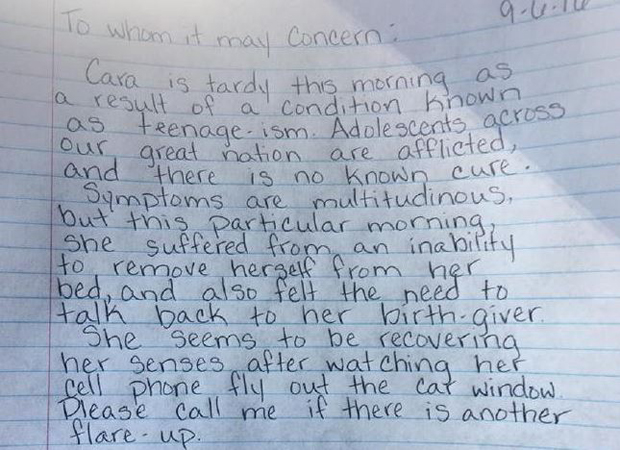 9-6-16
To whom it may Concern:
Cara is tardy this morning as
a result of a condition known
as teenage-ism. Adolescents across
our great nation are afflicted,
and there is no known cure.
Symptoms are multitudinous,
but this particular morning,
she suffered from an inability
to remove herself from her
bed, and also felt the need to
talk back to her birth-giver.
She seems to be recovering
her senses after watching her
cell phone fly out the car window.
Please call me if there is another
flare-up.